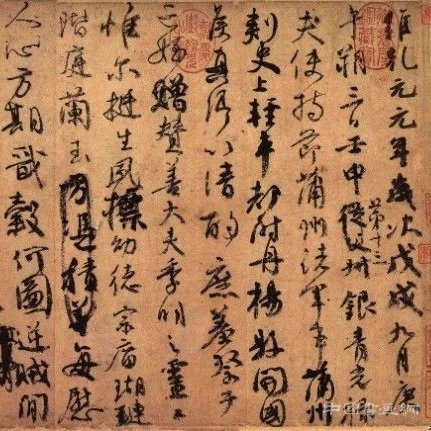 維乾元元年歲次戊戌九月庚
午朔三日壬申第十三從父銀青光祿
夫使持節蒲州諸軍事蒲州
刺史上輕車都尉丹楊縣開國
侯真卿以清酌庶羞祭于
亡姪贈贊善大夫季明之靈曰
惟爾挺生夙標幼德宗廟瑚璉
階庭蘭玉方憑積善每慰
人心方期戩穀何圖逆賊間
中国书画网